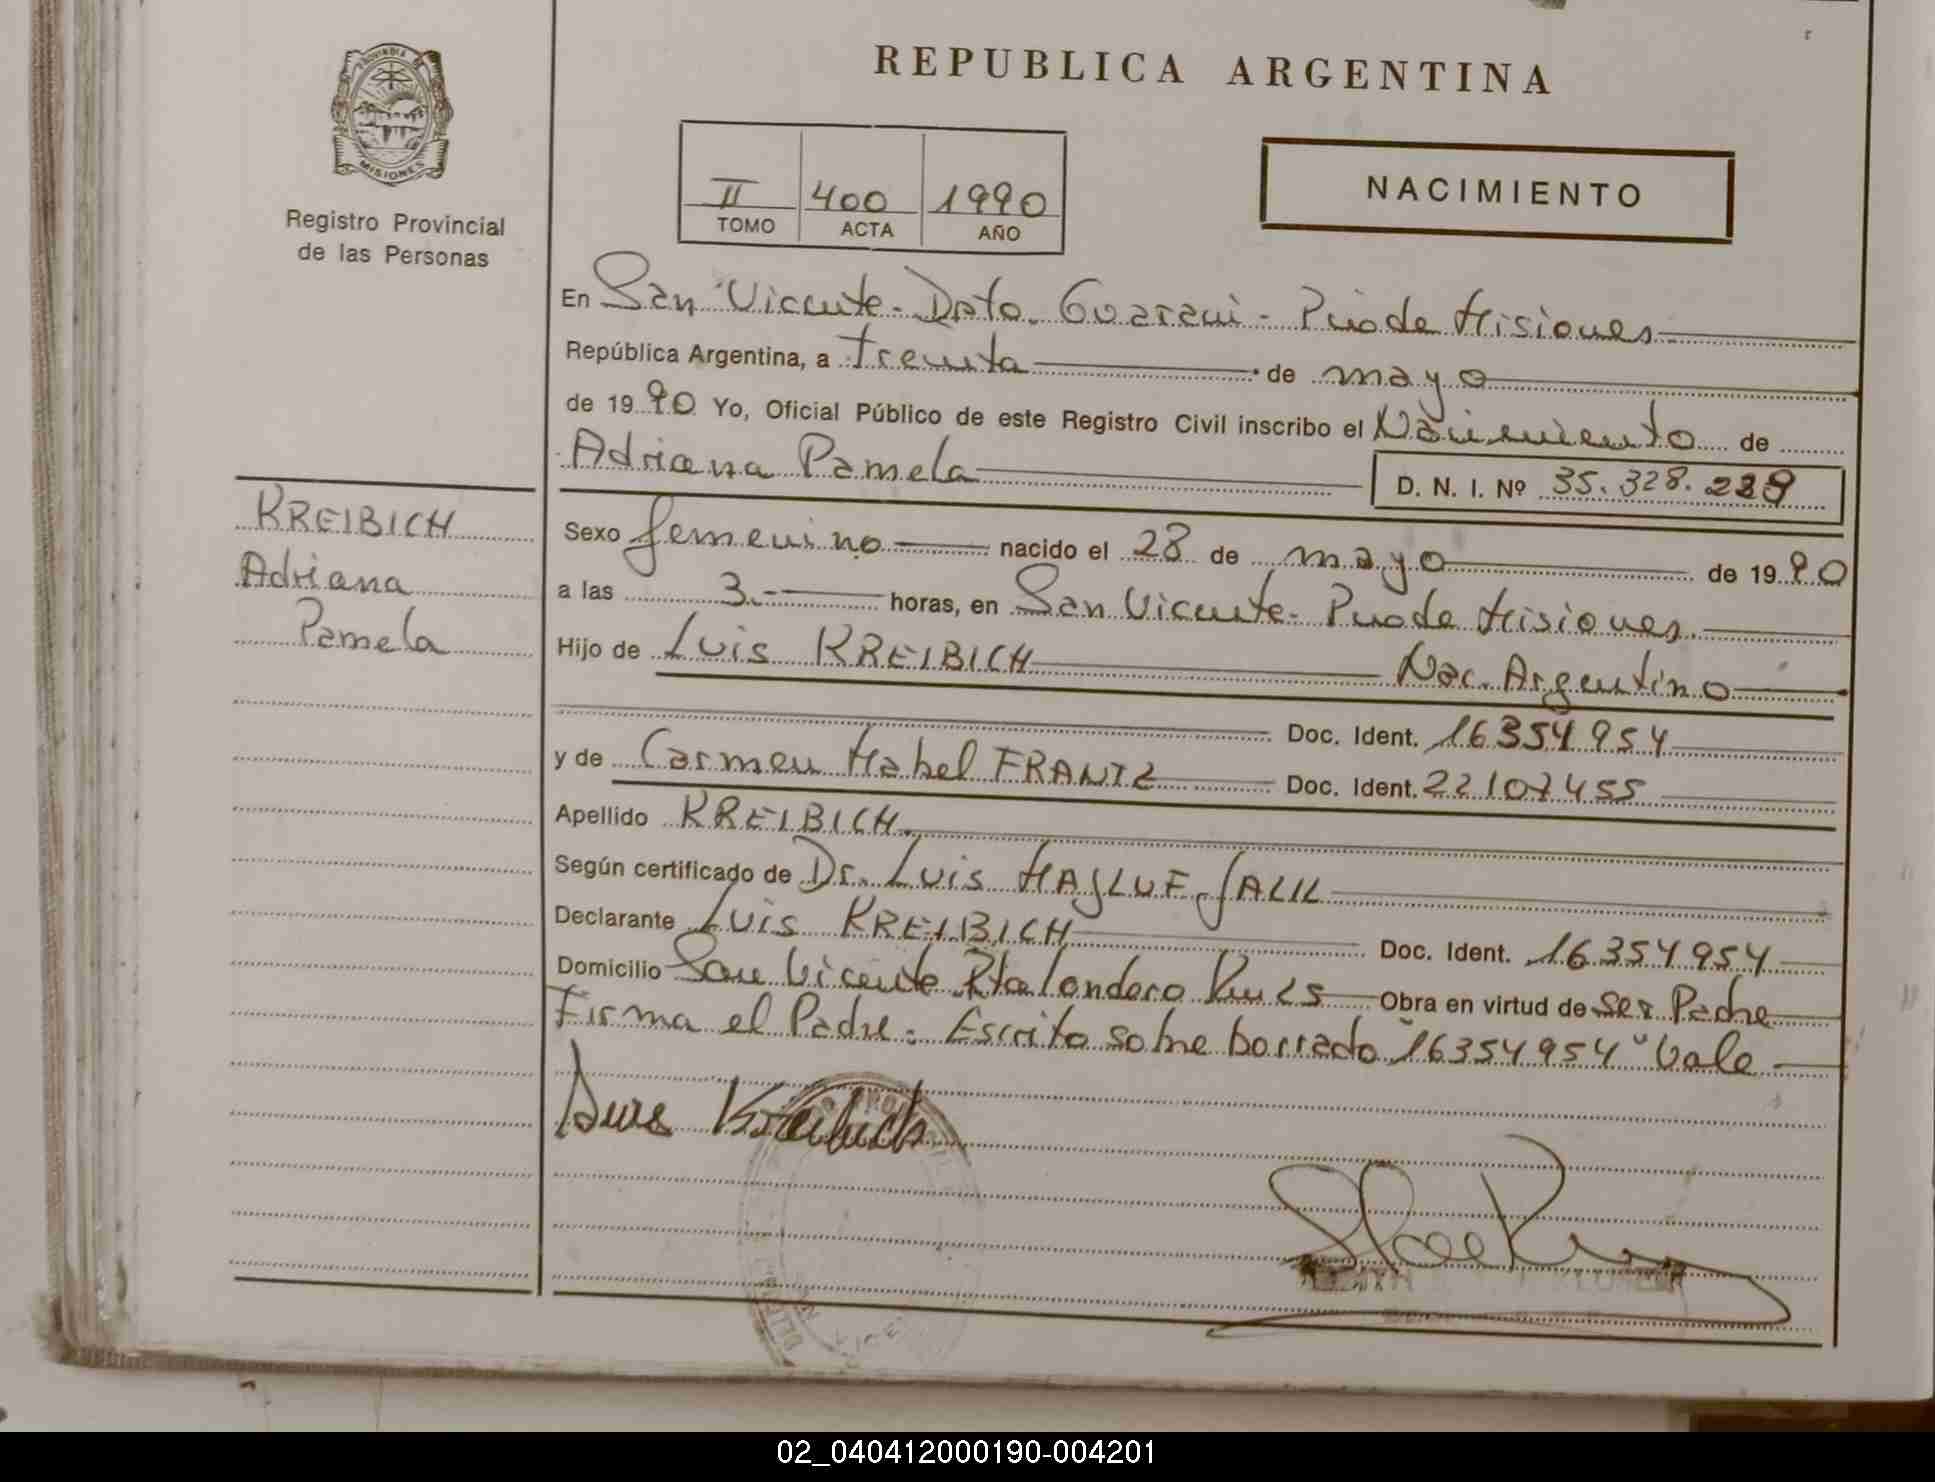 REPUBLICA ARGENTINA
PROVINCIA DE
MISIONES
Registro Provincial
de las Personas
II 400 1990
TOMO ACTA AÑO
NACIMIENTO
En San Vicente - Dpto. Guarani - Pcia de Misiones
República Argentina, a treinta de mayo
de 1990 Yo, Oficial Público de este Registro Civil inscribo el Nacimiento de
Adriana Pamela D. N. I. Nº 35.328.229
KREIBICH
Adriana
Pamela
Sexo femenino nacido el 28 de mayo de 1990
a las 3.- horas, en San Vicente - Pcia de Misiones
Hijo de Luis KREIBICH Nac. Argentino
Doc. Ident. 16354954
y de Carmen Mabel FRANTZ Doc. Ident. 22107455
Apellido KREIBICH
Según certificado de Dr. Luis JALIL
Declarante Luis KREIBICH Doc. Ident. 16354954
Domicilio San Vicente Obra en virtud de Ser Padre
Firma el Padre. Escrito sobre borrado "16354954" Vale
Luis Kreibich
02_040412000190-004201